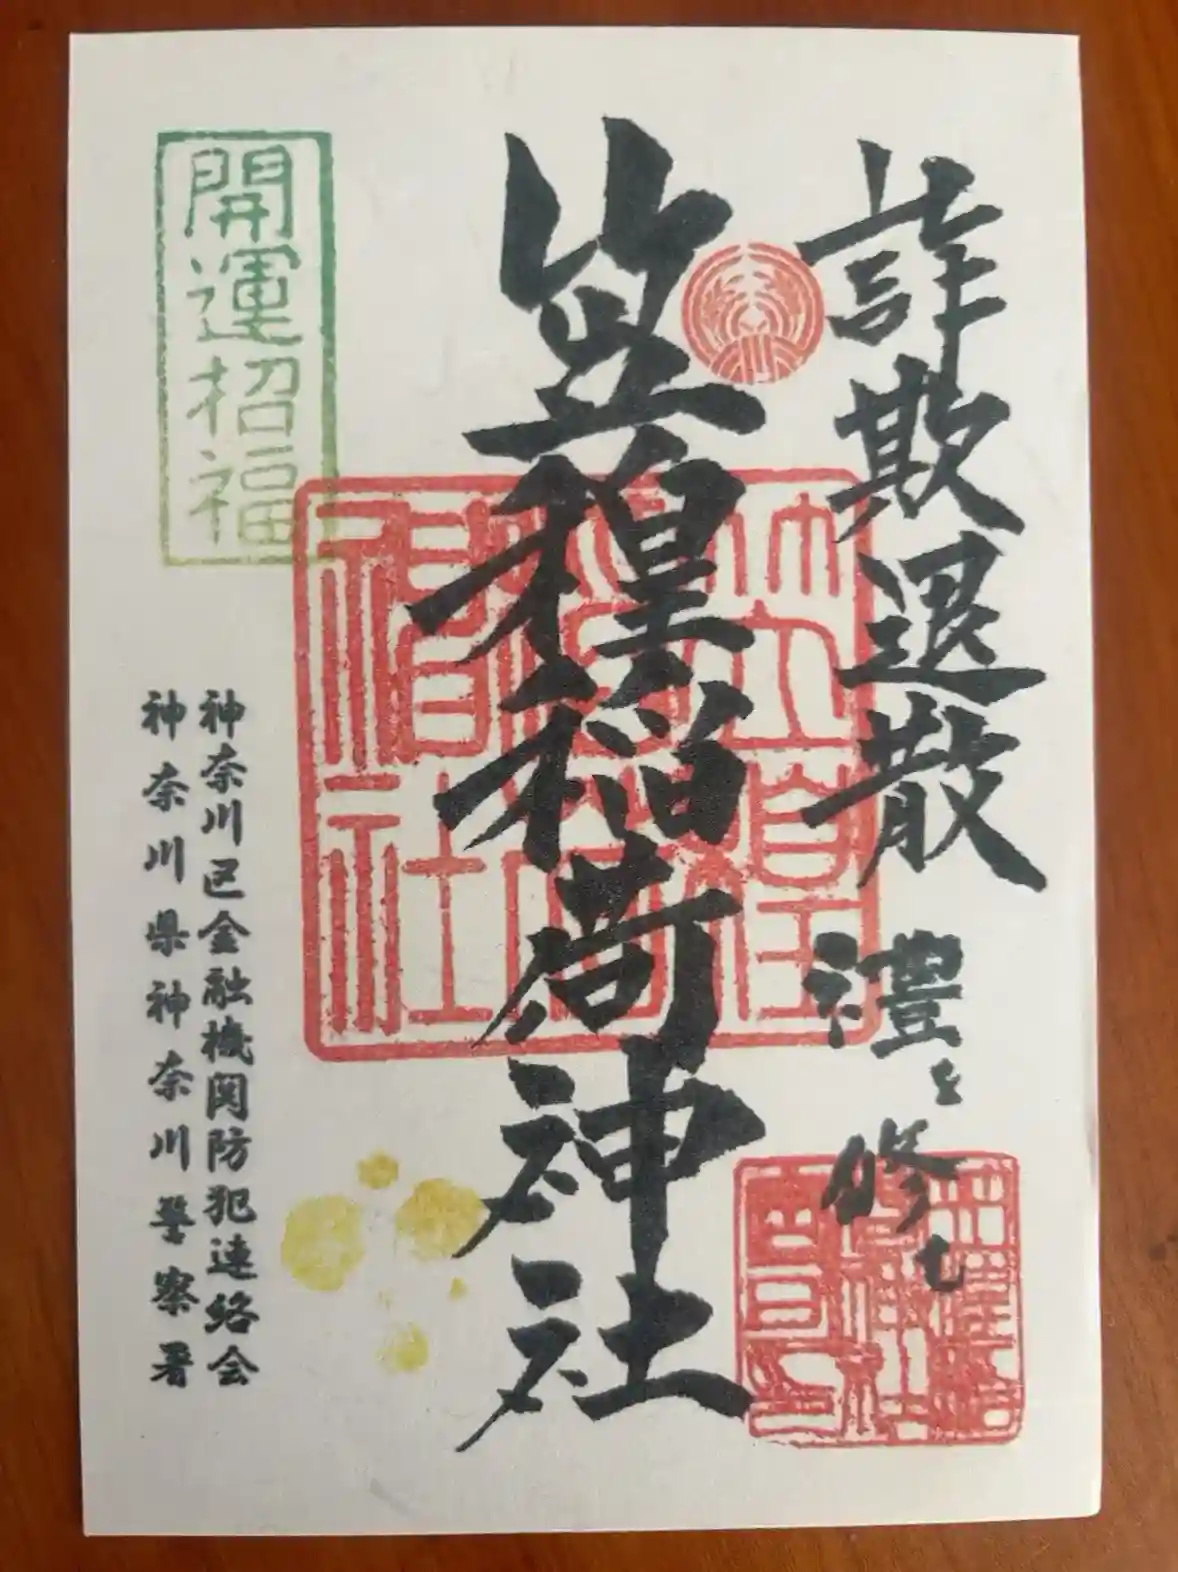 詐欺退散 禮を修む
笠䅣稲荷神社
笠䅣稲荷神社
開運招福
神奈川区金融機関防犯連絡会
神奈川県神奈川警察署